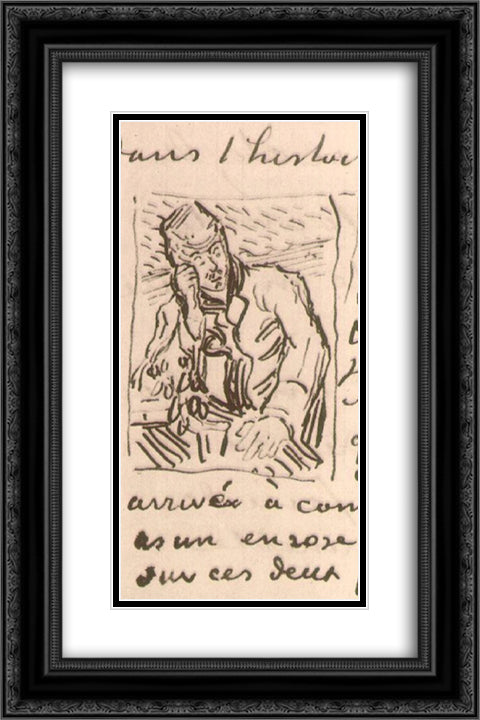 dans l'histoi
arrivée à com
as un en rose
sur ces deux